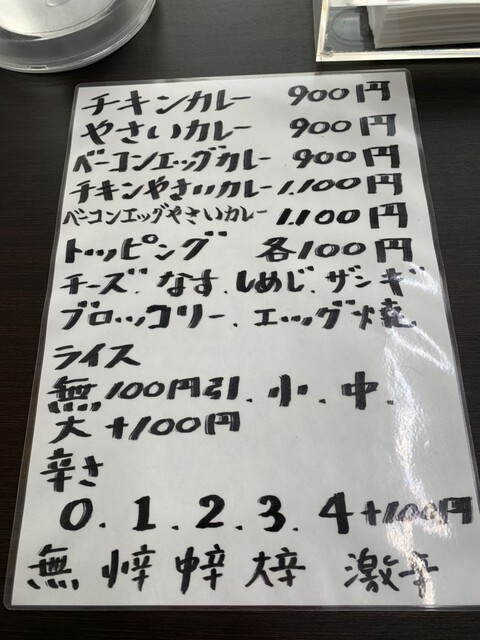 チキンカレー 900円
やさいカレー 900円
ベーコンエッグカレー 900円
チキンやさいカレー 1.100円
ベーコンエッグやさいカレー 1.100円
トッピング 各100円
チーズ.なす.しめじ.ザンギ
ブロッコリー.エッグ焼
ライス
無100円引.小.中.
大+100円
辛さ
0.1.2.3.4+100円
無 小辛 中辛 大辛 激辛